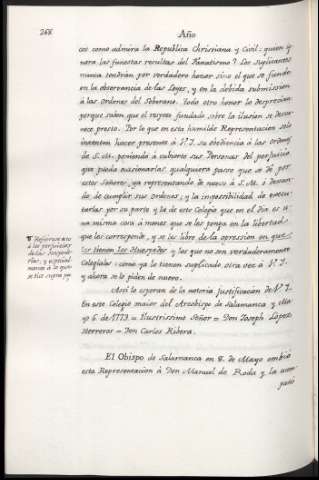 268
Año
cos como admira la Republica Christiana y Civil: quien ig
nora las funestas resultas del Fanatismo? Los Suplicantes
nunca tendrán por verdadero honor sino el que se funde
en la observancia de las Leyes, y en la debida submission
á las ordenes del Soberano. Todo otro honor lo desprecian
porque saben que el respeto fundado sobre la ilusion se desva-
nece presto. Por lo que en esta humilde Representacion solo
intentan hacer presente á V.I. su obediencia á las ordenes
de S.M. poniendo á cubierto sus Personas del perjuicio
que pueda ocasionarlas qualquiera passo que se dé por
estos Señores, ya representando de nuevo á S.M. ó dexan-
do de cumplir sus ordenes, y la impossibilidad de execu-
tarlas por su parte y la de este Colegio que en el dia es u-
na misma cosa á menos que se les ponga en la libertad
que les corresponde, y se les libre de la opression en que
los tienen los Huespedes y los que no son verdaderamente
Colegiales: como ya lo tienen suplicado otra vez á V.I.
y ahora se lo piden de nuevo.
¶ Refierense
á los perjuicios
de las Hospede-
rias, y especial-
mente á lo que
se dijo supra pp.
Assi lo esperan de la notoria justificacion de V.I.
En este Colegio maior del Arzobispo de Salamanca y Ma-
yo 6. de 1773 = Ilustrissimo Señor = Don Joseph Lopez
Herreros = Don Carlos Ribera.
El Obispo de Salamanca en 8. de Mayo embió
esta Representacion á Don Manuel de Roda y la acom-
pañó